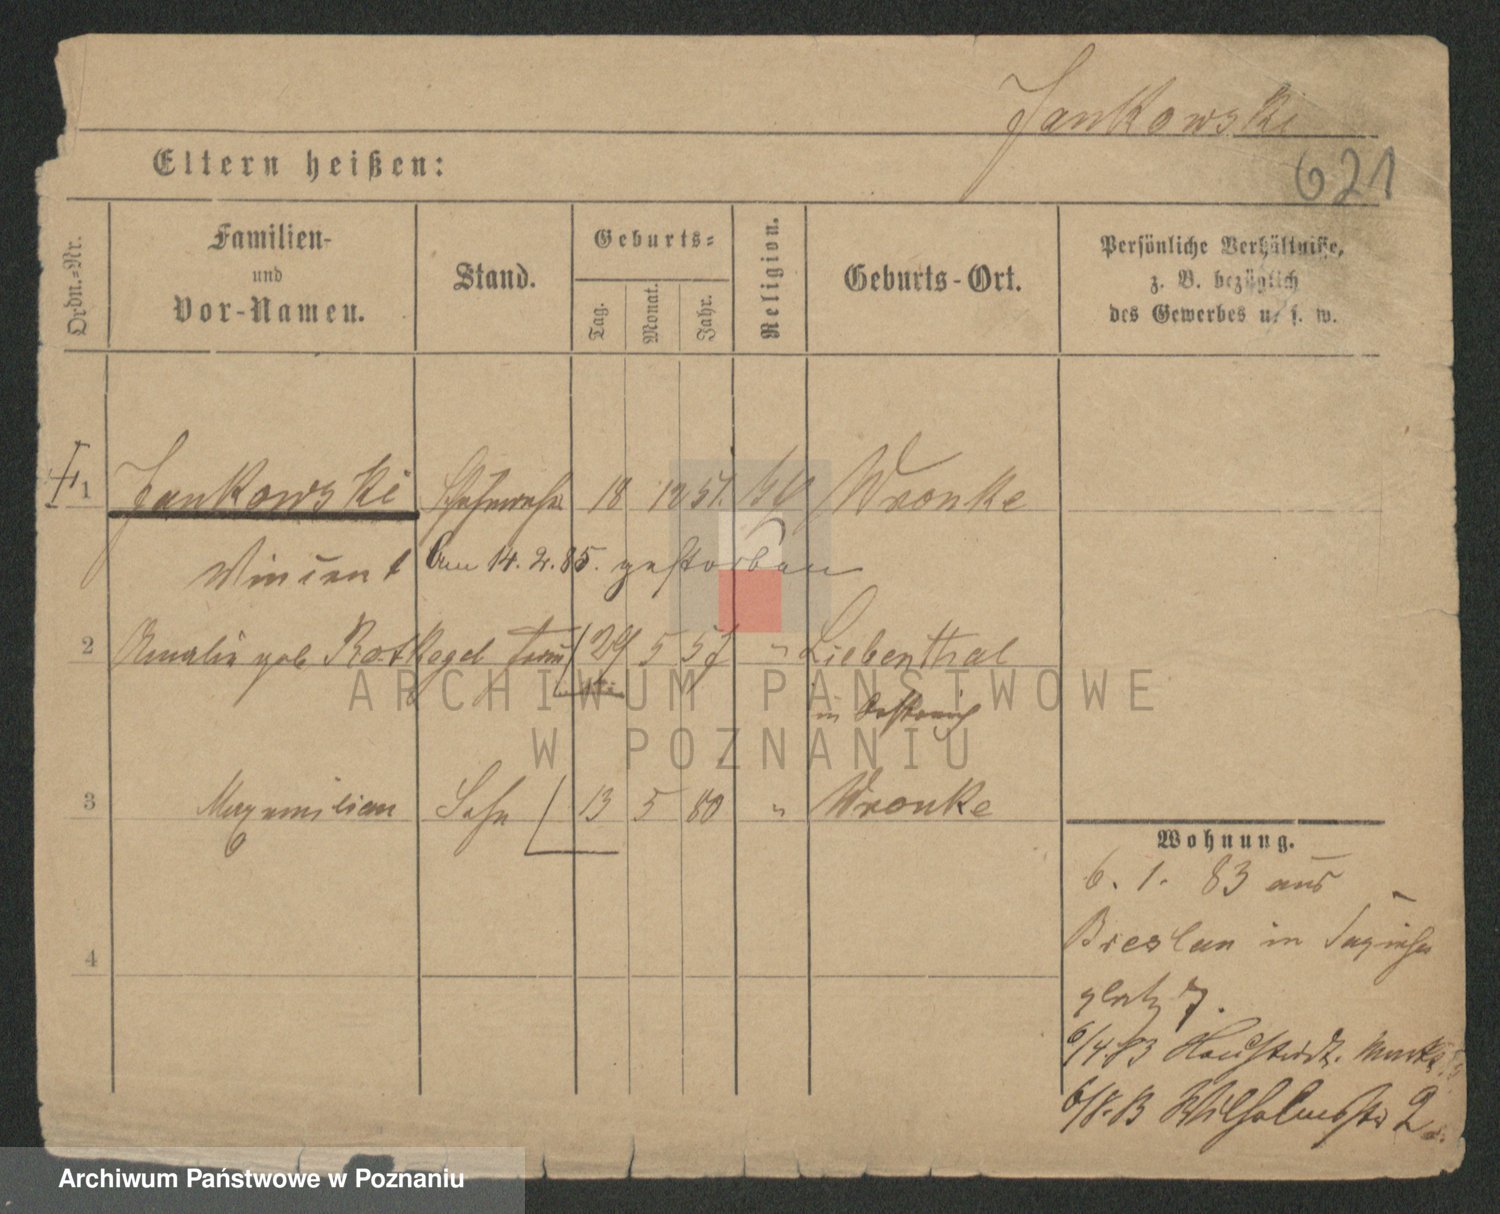 Jankowski
621
Eltern heißen:
Ordn.-Nr.
Familien-
und
Vor-Namen.
Stand.
Geburts-
Tag.
Monat.
Jahr.
Religion.
Geburts-Ort.
Persönliche Verhältnisse,
z. B. bezüglich
des Gewerbes u. s. w.
1 Jankowski 18 12 51. Wronke
Vincent am 14. 2. 85. gestorben
2 Amalie geb. Rotkegel Frau 29 5 57 " Liebenthal
in Östreich
3 Maxymilian Sohn 13 5 80 " Wronke
Wohnung.
6. 1. 83 aus
Breslau in Sapieha
platz 7.
6/4 83 Neustädt. Markt
6/8. 83 Wilhelmstr 2
4
ARCHIWUM PAŃSTWOWE
W POZNANIU
Archiwum Państwowe w Poznaniu